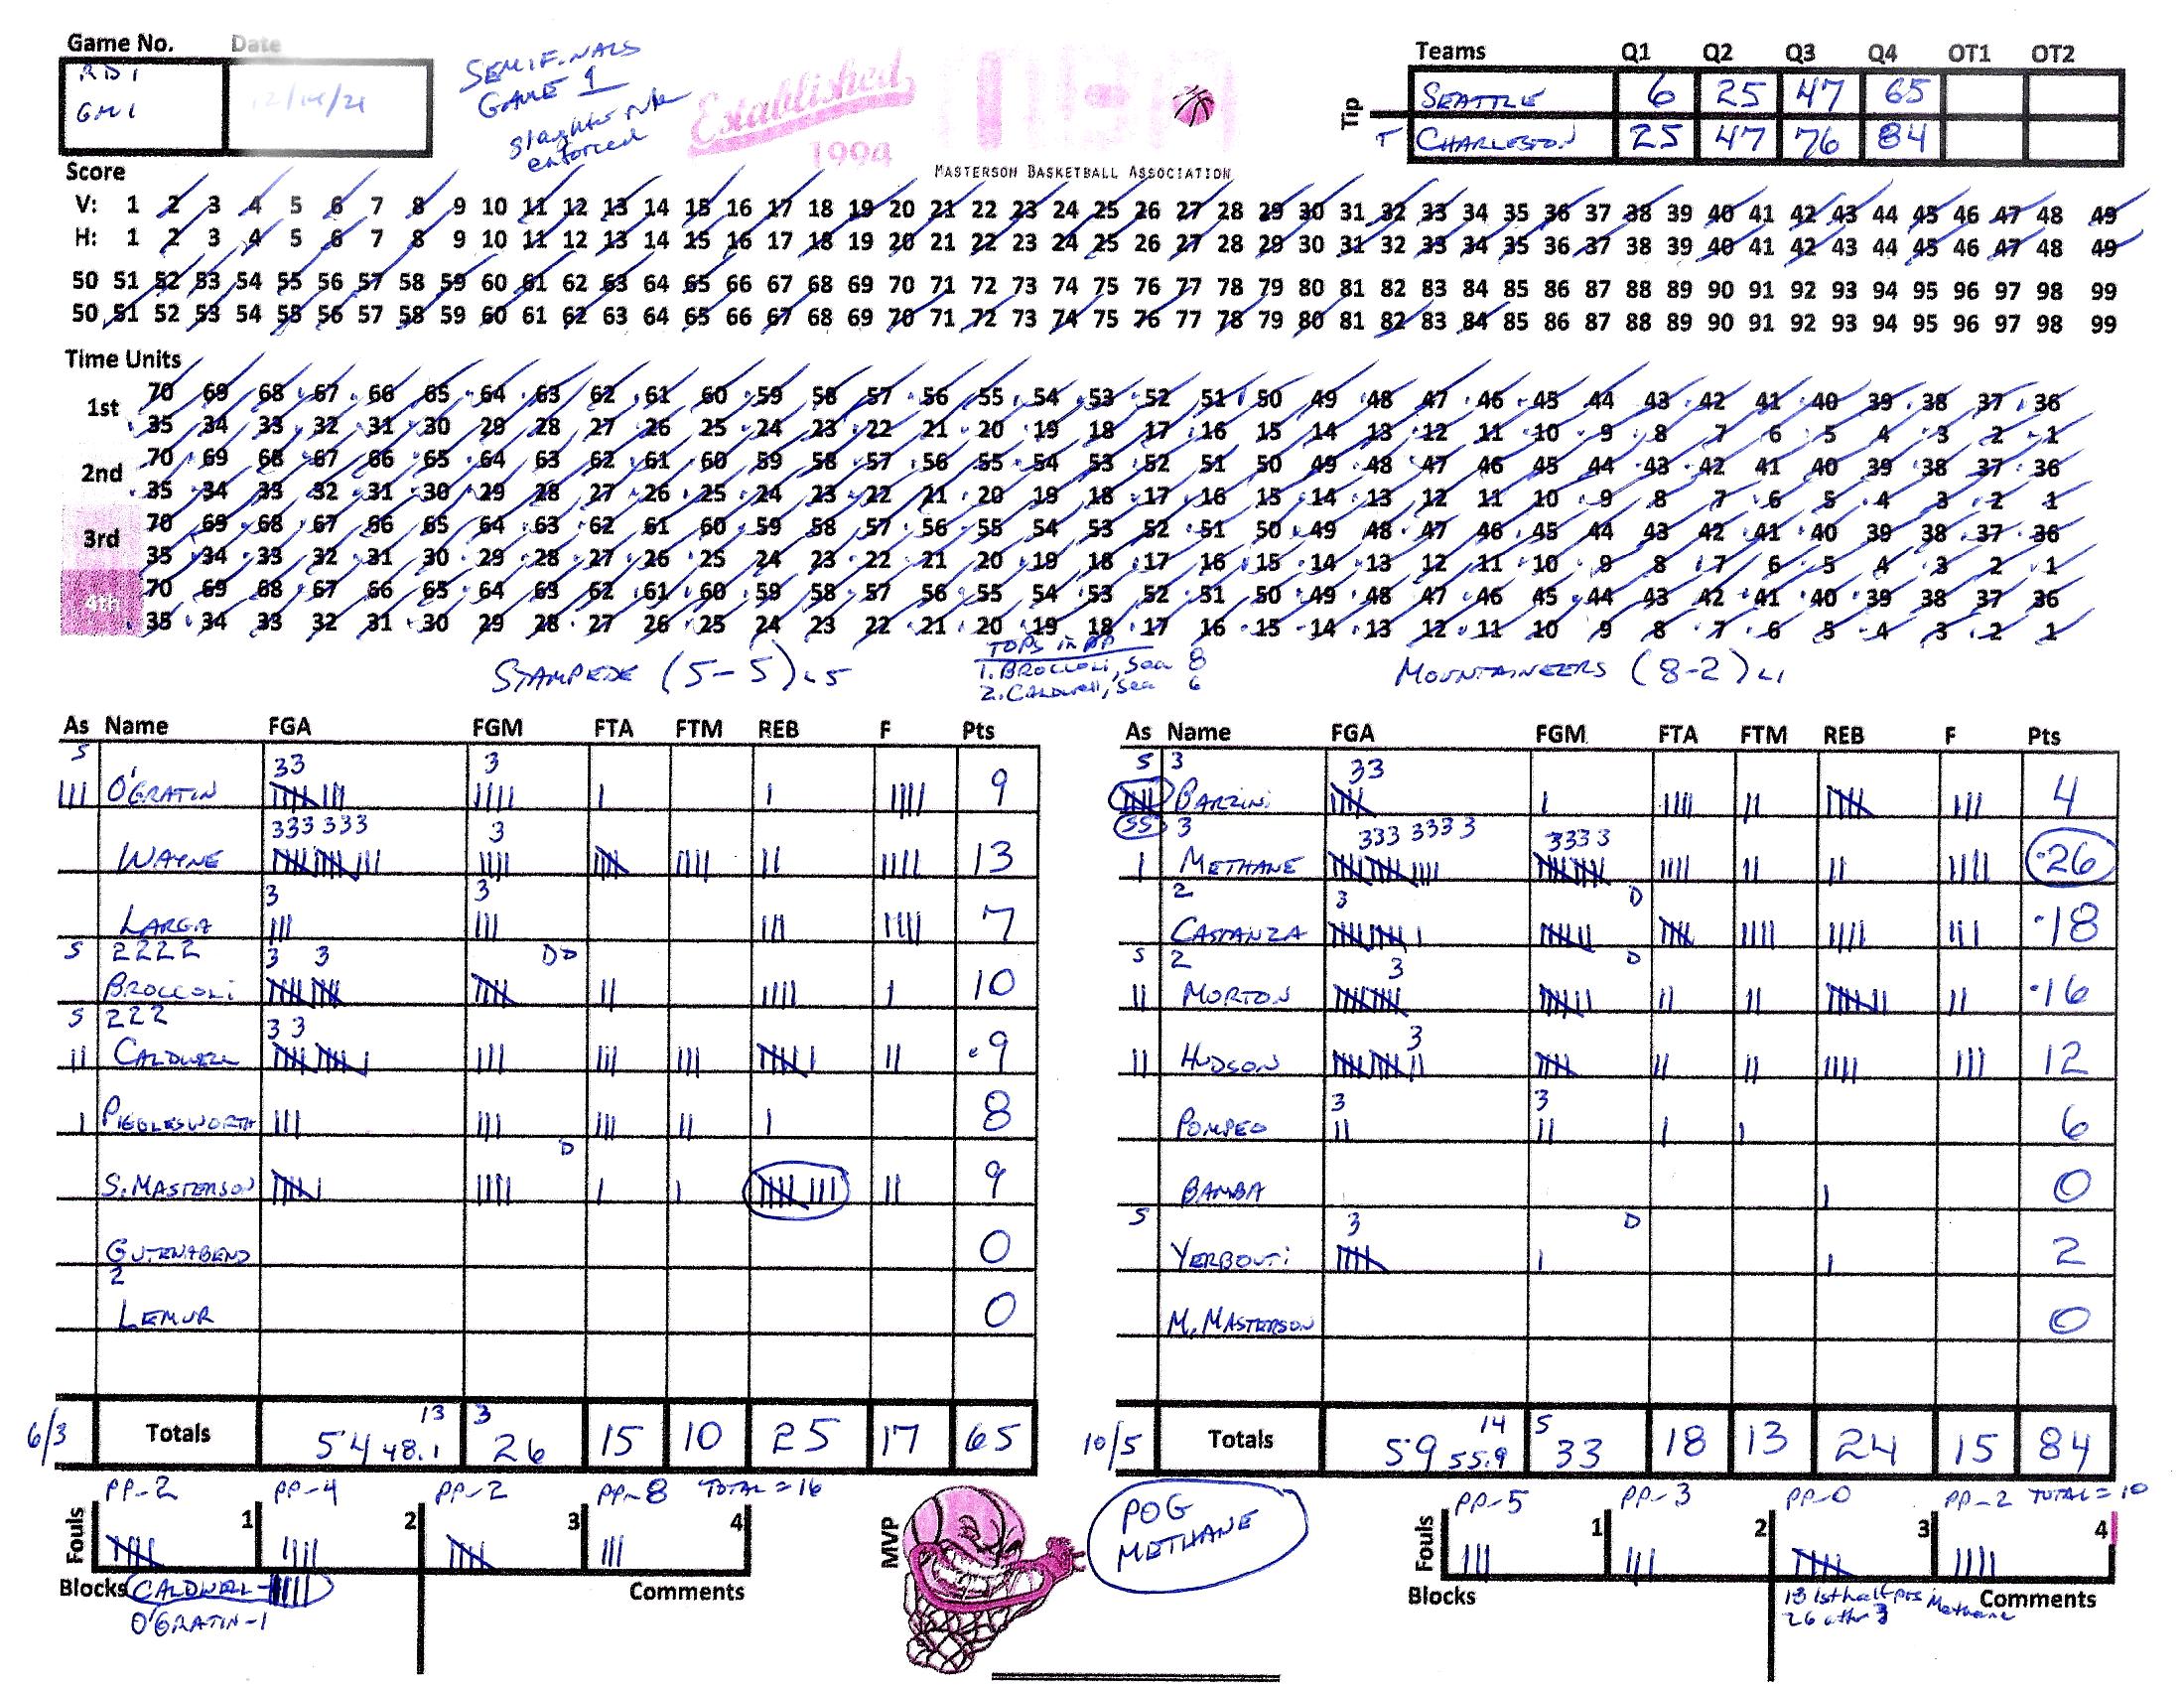 Game No. Date
RD1
GM1
12/14/21
SEMIFINALS
GAME 1
slaughter rule
enforced
Established
1994
MASTERSON BASKETBALL ASSOCIATION
Teams Q1 Q2 Q3 Q4 OT1 OT2
Tip
SEATTLE 6 25 47 65
T CHARLESTON 25 47 76 84
Score
V: 1 2 3 4 5 6 7 8 9 10 11 12 13 14 15 16 17 18 19 20 21 22 23 24 25 26 27 28 29 30 31 32 33 34 35 36 37 38 39 40 41 42 43 44 45 46 47 48 49
H: 1 2 3 4 5 6 7 8 9 10 11 12 13 14 15 16 17 18 19 20 21 22 23 24 25 26 27 28 29 30 31 32 33 34 35 36 37 38 39 40 41 42 43 44 45 46 47 48 49
50 51 52 53 54 55 56 57 58 59 60 61 62 63 64 65 66 67 68 69 70 71 72 73 74 75 76 77 78 79 80 81 82 83 84 85 86 87 88 89 90 91 92 93 94 95 96 97 98 99
50 51 52 53 54 55 56 57 58 59 60 61 62 63 64 65 66 67 68 69 70 71 72 73 74 75 76 77 78 79 80 81 82 83 84 85 86 87 88 89 90 91 92 93 94 95 96 97 98 99
Time Units
1st 70 69 68 67 66 65 64 63 62 61 60 59 58 57 56 55 54 53 52 51 50 49 48 47 46 45 44 43 42 41 40 39 38 37 36
35 34 33 32 31 30 29 28 27 26 25 24 23 22 21 20 19 18 17 16 15 14 13 12 11 10 9 8 7 6 5 4 3 2 1
2nd 70 69 68 67 66 65 64 63 62 61 60 59 58 57 56 55 54 53 52 51 50 49 48 47 46 45 44 43 42 41 40 39 38 37 36
35 34 33 32 31 30 29 28 27 26 25 24 23 22 21 20 19 18 17 16 15 14 13 12 11 10 9 8 7 6 5 4 3 2 1
3rd 70 69 68 67 66 65 64 63 62 61 60 59 58 57 56 55 54 53 52 51 50 49 48 47 46 45 44 43 42 41 40 39 38 37 36
35 34 33 32 31 30 29 28 27 26 25 24 23 22 21 20 19 18 17 16 15 14 13 12 11 10 9 8 7 6 5 4 3 2 1
4th 70 69 68 67 66 65 64 63 62 61 60 59 58 57 56 55 54 53 52 51 50 49 48 47 46 45 44 43 42 41 40 39 38 37 36
35 34 33 32 31 30 29 28 27 26 25 24 23 22 21 20 19 18 17 16 15 14 13 12 11 10 9 8 7 6 5 4 3 2 1
STAMPEDE (5-5) L5
TOPS in PP
1. BROCCOLI, Sea 8
2. CALDWELL, Sea 6
MOUNTAINEERS (8-2) L1
As Name FGA FGM FTA FTM REB F Pts
S 33 3
O'GRATIN 9
333 333 3
WAYNE 13
3 3
LARGA 7
S 2222 3 3 DD
BROCCOLI 10
S 222 33
CALDWELL 9
PIGGLESWORTH 8
D
S. MASTERSON 9
GUTENABEND 0
2
LEMUR 0
13 3
6/3 Totals 54 48.1 26 15 10 25 17 65
PP-2 PP-4 PP-2 PP-8 TOTAL = 16
Fouls 1 2 3 4
Blocks CALDWELL - Comments
O'GRATIN - 1
MVP
POG
METHANE
As Name FGA FGM FTA FTM REB F Pts
S 3 33
BARZINI 4
SS 3 333 3333 3333
METHANE 26
2 3 D
CASTANZA 18
S 2 3 D
MORTON 16
3
HUDSON 12
3 3
POMPEO 6
BAMBA 0
S 3 D
YERBOUTI 2
M. MASTERSON 0
14 5
10/5 Totals 59 55.9 33 18 13 24 15 84
PP-5 PP-3 PP-0 PP-2 TOTAL = 10
Fouls 1 2 3 4
Blocks Comments
13 1st half pts Methane
26 after 3